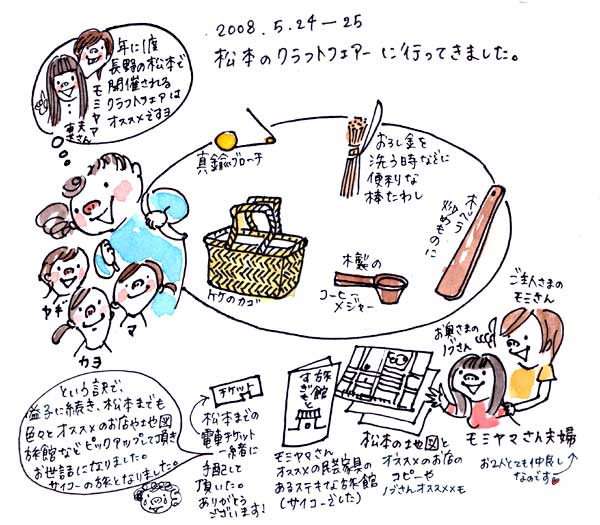 2008.5.24−25
松本のクラフトフェアーに行ってきました。
年に1度
長野の松本で
開催される
クラフトフェアは
オススメですヨ
モミヤマ
夫妻さん
真鍮ブローチ
おろし金を
洗う時などに
便利な
棒たわし
木べラ
炒めものに
木製の
コーヒー
メジャー
竹のカゴ
ヤギ
カヨ
マ
ご主人さまの
モミさん
お奥さまの
ノブさん
モミヤマさん夫婦
お2人とても仲良し
なのです
という訳で、
益子に続き、松本までも
色々とオススメのお店や地図
旅館などピックアップして頂き
お世話になりました。
サイコーの旅となりました。
チケット
松本までの
電車チケット
一緒に
手配して
頂いた。
ありがとう
ございます!
旅館
すぎもと
モミヤマさん
オススメの民芸家具の
あるステキな旅館
(サイコーでした)
松本の地図と
オススメのお店の
コピーや
ノブさんオススメメモ